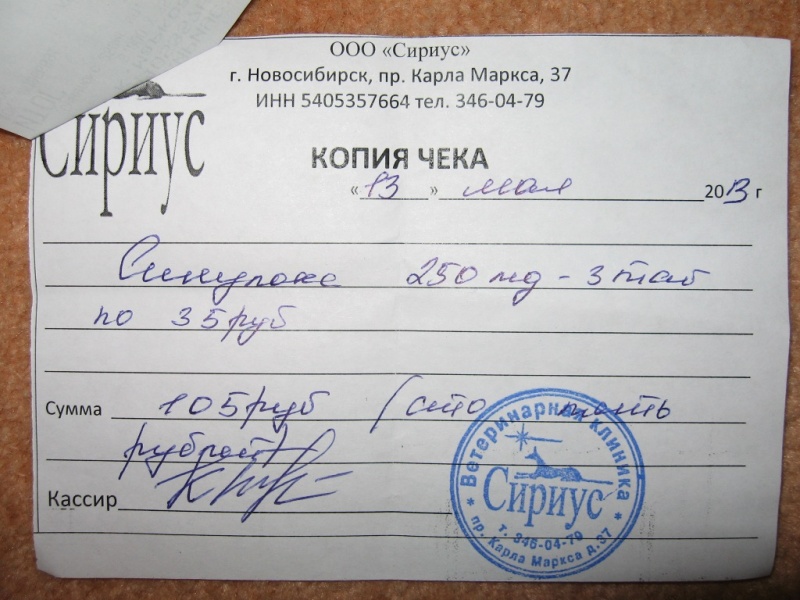 ООО «Сириус»
г. Новосибирск, пр. Карла Маркса, 37
ИНН 5405357664 тел. 346-04-79
Сириус
КОПИЯ ЧЕКА
« 13 » мая 2013 г
Синулокс 250 мг - 3 таб
по 35 руб
Сумма 105 руб (сто пять
рублей)
Кассир
Ветеринарная клиника
Сириус
т. 346-04-79
пр. Карла Маркса д.37